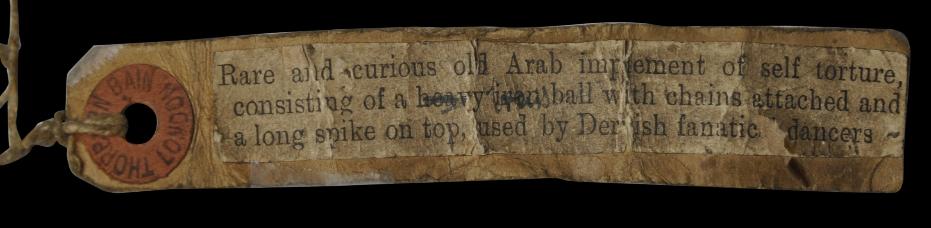 Rare and curious old Arab implement of self torture,
consisting of a heavy iron ball with chains attached and
a long spike on top, used by Dervish fanatic dancers
THORP BAIN